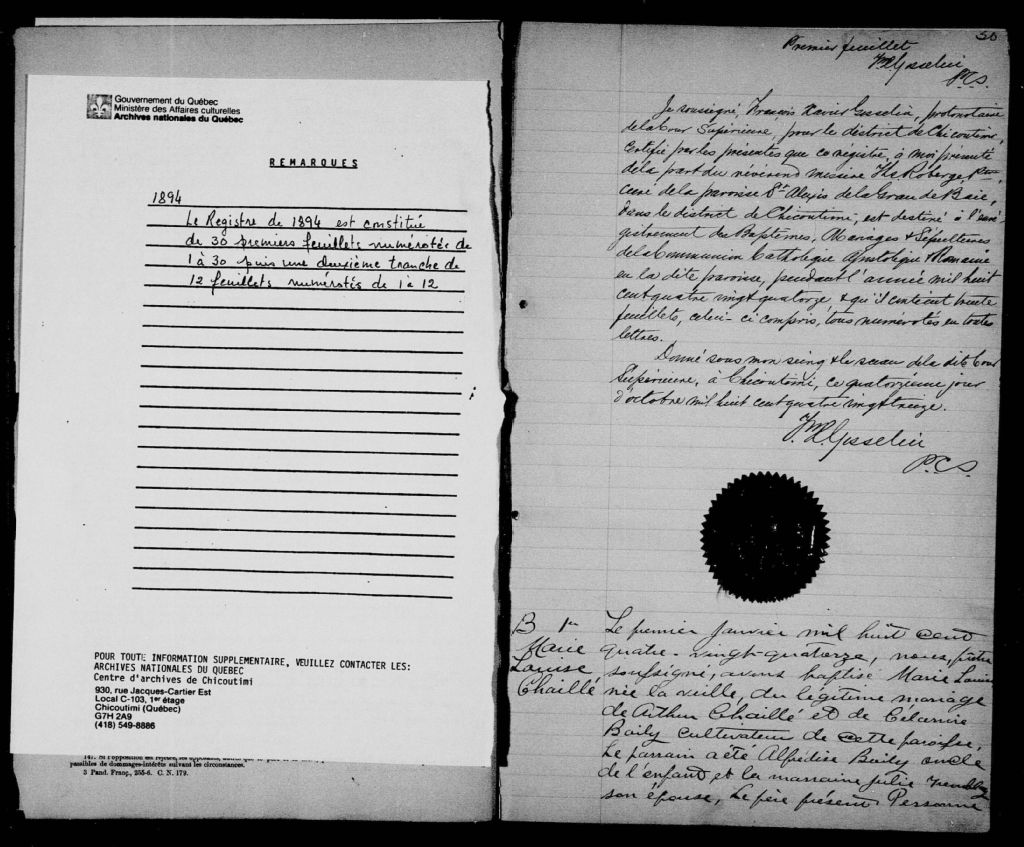 Gouvernement du Québec
Ministère des Affaires culturelles
Archives nationales du Québec
REMARQUES
1894
Le Registre de 1894 est constitué
de 30 premiers feuillets numérotés de
1 à 30 puis une deuxième tranche de
12 feuillets numérotés de 1 à 12
POUR TOUTE INFORMATION SUPPLEMENTAIRE, VEUILLEZ CONTACTER LES:
ARCHIVES NATIONALES DU QUEBEC
Centre d'archives de Chicoutimi
930, rue Jacques-Cartier Est
Local C-103, 1er étage
Chicoutimi (Québec)
G7H 2A9
(418) 549-8886
passibles de dommages-intérêts suivant les circonstances.
3 Pand. Franç., 255-6. C. N. 179.
Premier feuillet
Gosselin
P.C.S.
Je soussigné, François Xavier Gosselin, protonotaire
de la Cour Supérieure, pour le district de Chicoutimi,
Certifie par les présentes que ce régistre, à moi présenté
de la part du révérend messire Roberge Ptre
curé de la paroisse St Alexis de la Grande Baie,
dans le district de Chicoutimi, est destiné à l'enré
gistrement des Baptêmes, Mariages & Sépultures
de la Communion Catholique Apostolique & Romaine
en la dite paroisse, pendant l'année mil huit
cent quatre vingt quatorze, & qu'il contient trente
feuillets, celui-ci compris, tous numérotés en toutes
lettres.
Donné sous mon seing & le sceau de la dite Cour
Supérieure, à Chicoutimi, ce quatorzième jour
d'octobre mil huit cent quatre vingt treize.
Gosselin
P.C.S.
B 1er
Marie
Louise
Chaillé
Le premier Janvier mil huit cent
quatre-vingt-quatorze, nous, prêtre
soussigné, avons baptisé Marie Louise
née la veille, du légitime mariage
de Arthur Chaillé et de Célanire
Baily cultivateur de cette paroisse,
Le parrain a été Alfédise Baily oncle
de l'enfant et la marraine julie Tremblay
son épouse, Le père présent Personne